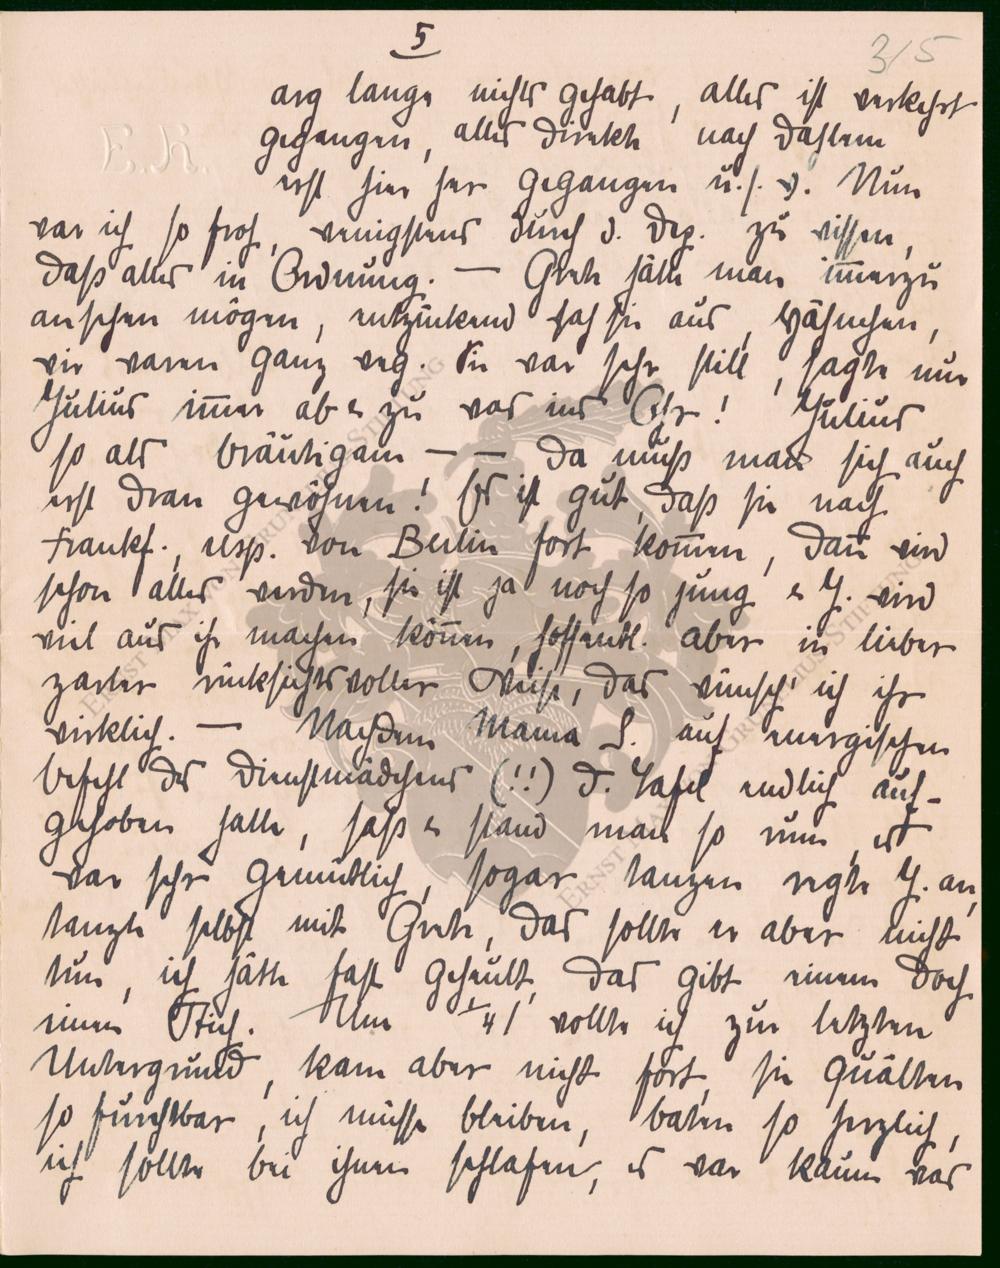 5
3/5
E.K.
arg lange nichts gehabt, alles ist verkehrt
gegangen, alles direkte nach Dahlem
erst hier her gegangen u.s.w. Nun
war ich so froh, wenigstens durch d. Dep. zu wissen,
daß alles in Ordnung. — Grete hätte man im̅erzu
ansehen mögen, entzückend sah sie aus,
wir waren ganz weg. Sie war sehr still, sagte nur
Julius im̅er ab & zu was ins Ohr! Julius
so als Bräutigam — — da muß man sich auch
erst dran gewöhnen! Es ist gut, daß sie nach
Frankf., resp. von Berlin fort kom̅en, dan̅ wird
schon alles werden, sie ist ja noch so jung & J. wird
viel aus ihr machen kön̅en, hoffentl. aber in lieber
zarter rücksichtsvoller Weise, das wünsch' ich ihr
wirklich. — Nachdem Mama L. auf energischen
Befehl des Dienstmädchens (!!) d. Tafel endlich auf-
gehoben hatte, saß & stand man so rum, es
war sehr gemütlich, sogar tanzen regte J. an,
tanzte selbst mit Grete, das sollte er aber nicht
tun, ich hätte fast geheult, das gibt einem doch
einen Stich. Um 1/4 1 wollte ich zur letzten
Untergrund, kam aber nicht fort, sie quälten
so furchtbar, ich müsse bleiben, baten so herzlich,
ich sollte bei ihnen schlafen, es war kaum was
ERNST MAX VON GRUNELIUS STIFTUNG
ERNST MAX VON GRUNELIUS STIFTUNG